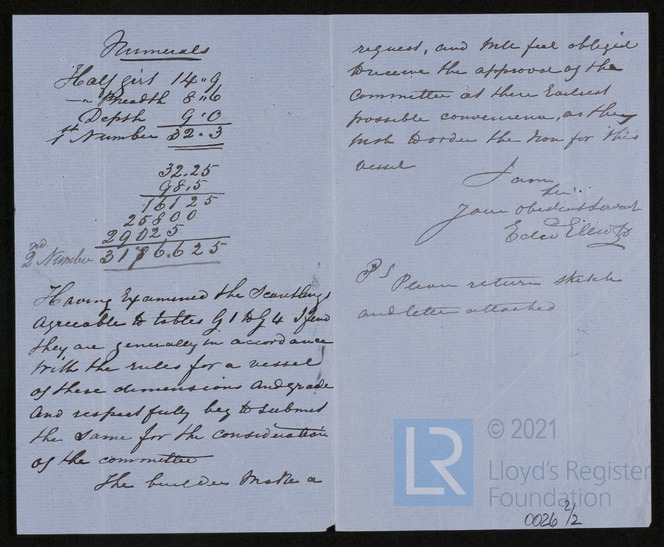 Numerals
Half Girt 14"9
— " Breadth 8"6
Depth 9"0
1st Number 32.3
32.25
98.5
16125
25800
29025
2nd Number 3176.625
Having Examined the Scantlings
agreeable to tables G1 to G4 I find
they are generally in accordance
with the rules for a vessel
of these dimensions and grade
and respectfully beg to submit
the same for the consideration
of the committee
The builders make a
request, and will feel obliged
to receive the approval of the
Committee at their Earliest
possible convenience, as they
wish to order the Iron for this
vessel
I am
Sir
Your obedient servant
Edwd
PS Please return sketch
and letter attached
LR
© 2021
Lloyd's Register
Foundation
0026 2/2